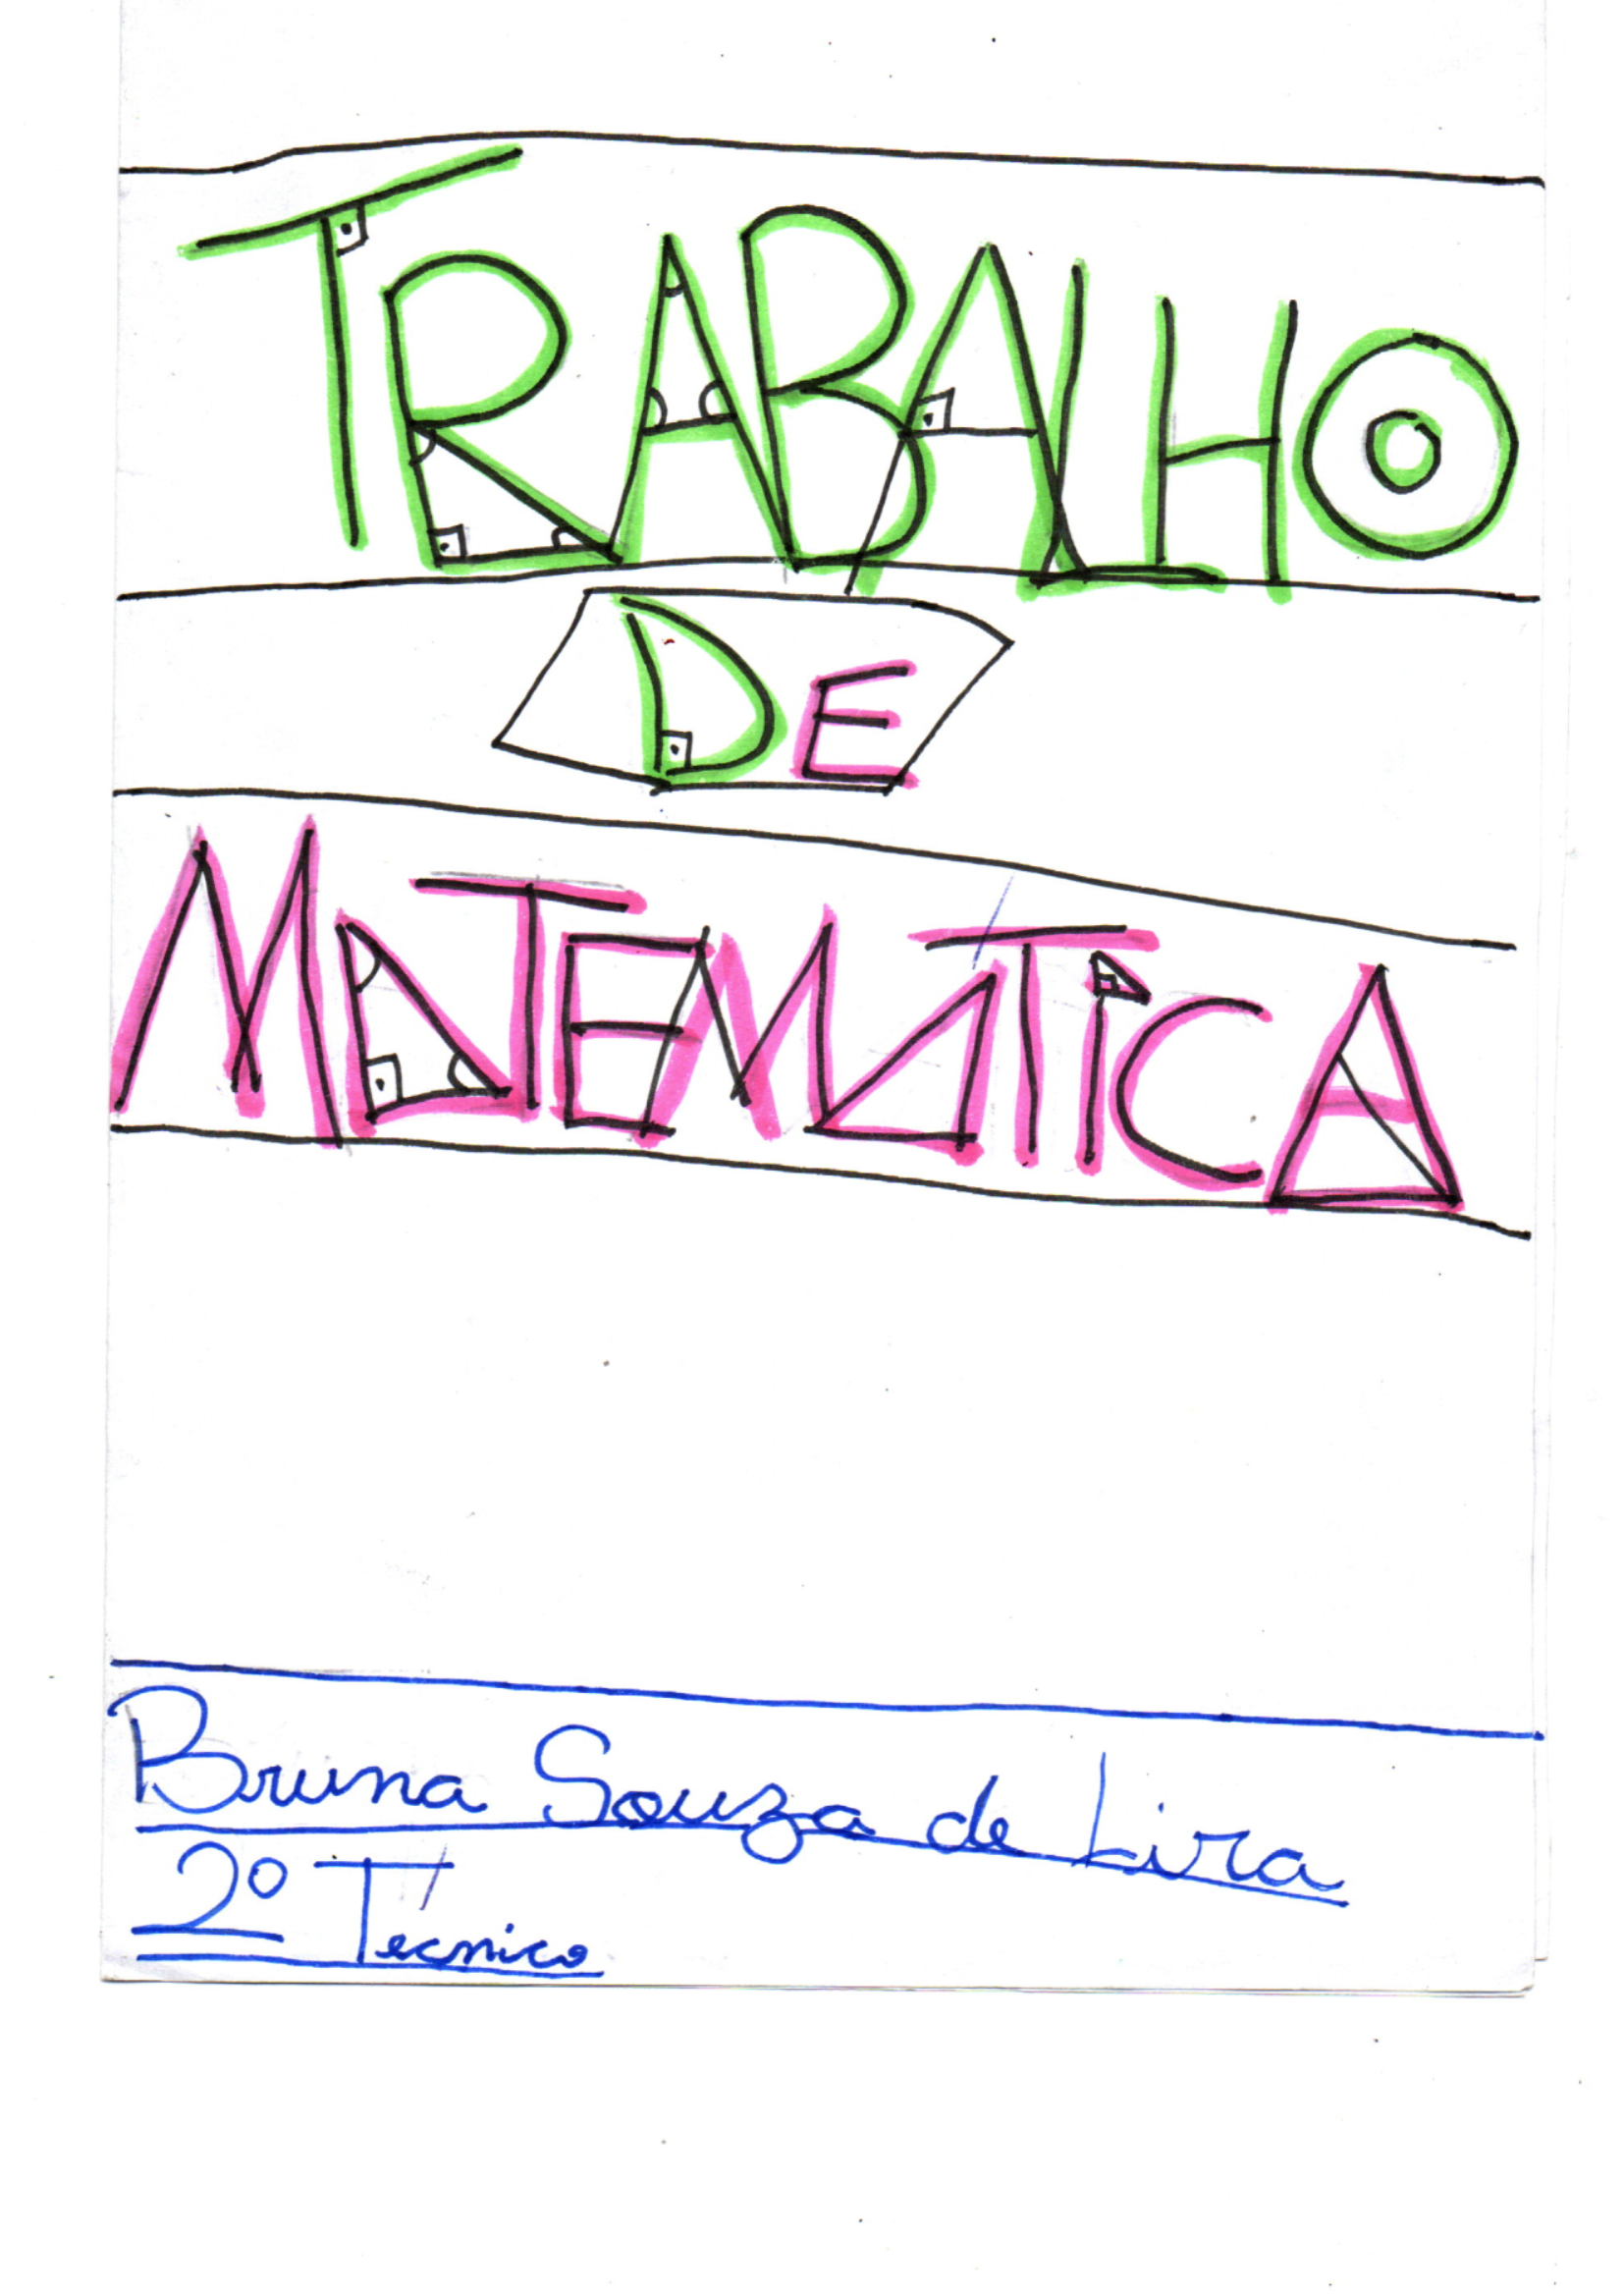 TRABALHO
DE
MATEMÁTICA
Bruna Souza de Lira
2º Técnico